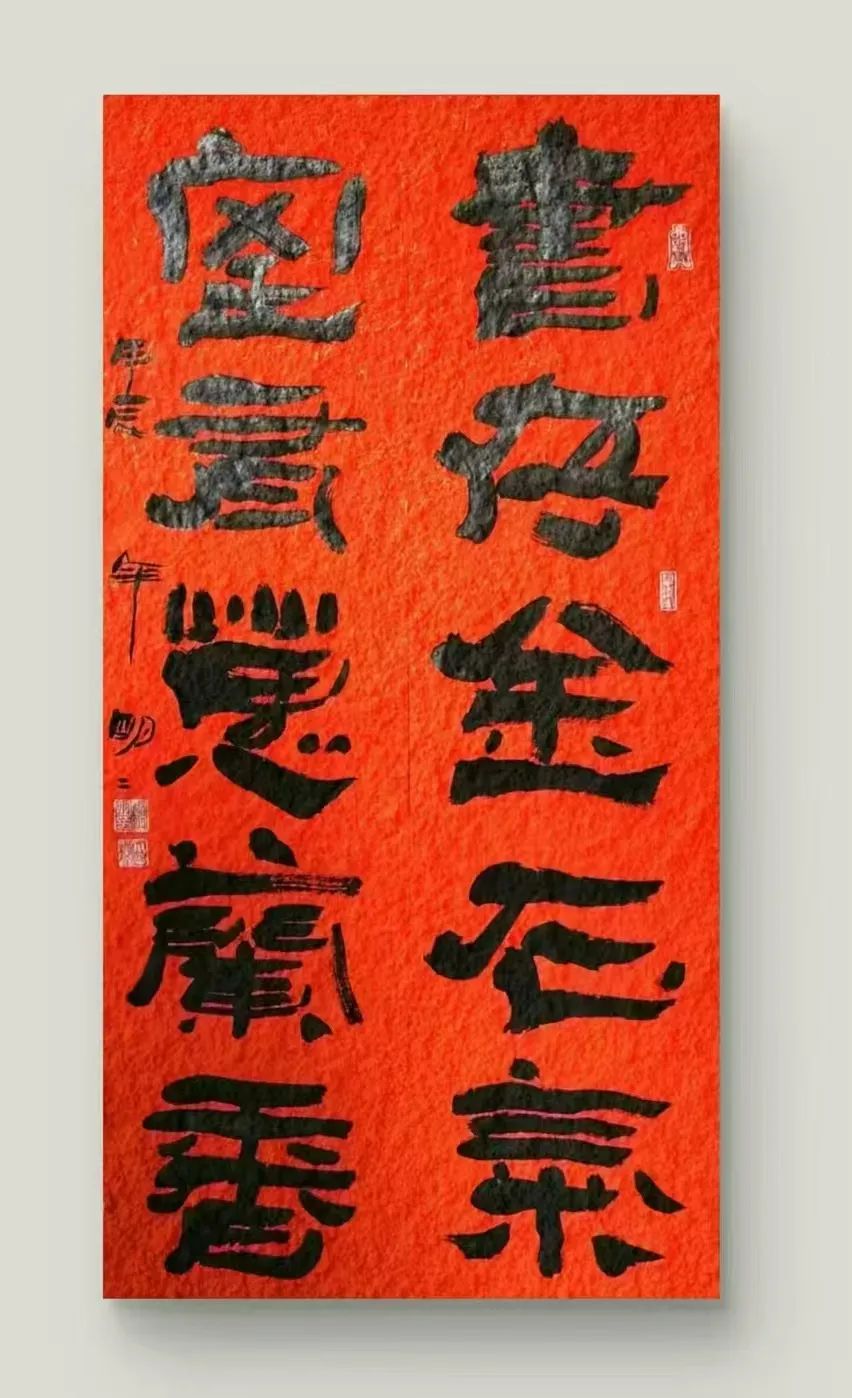 書存金石氣
室有蕙蘭香
甲辰年 午明二